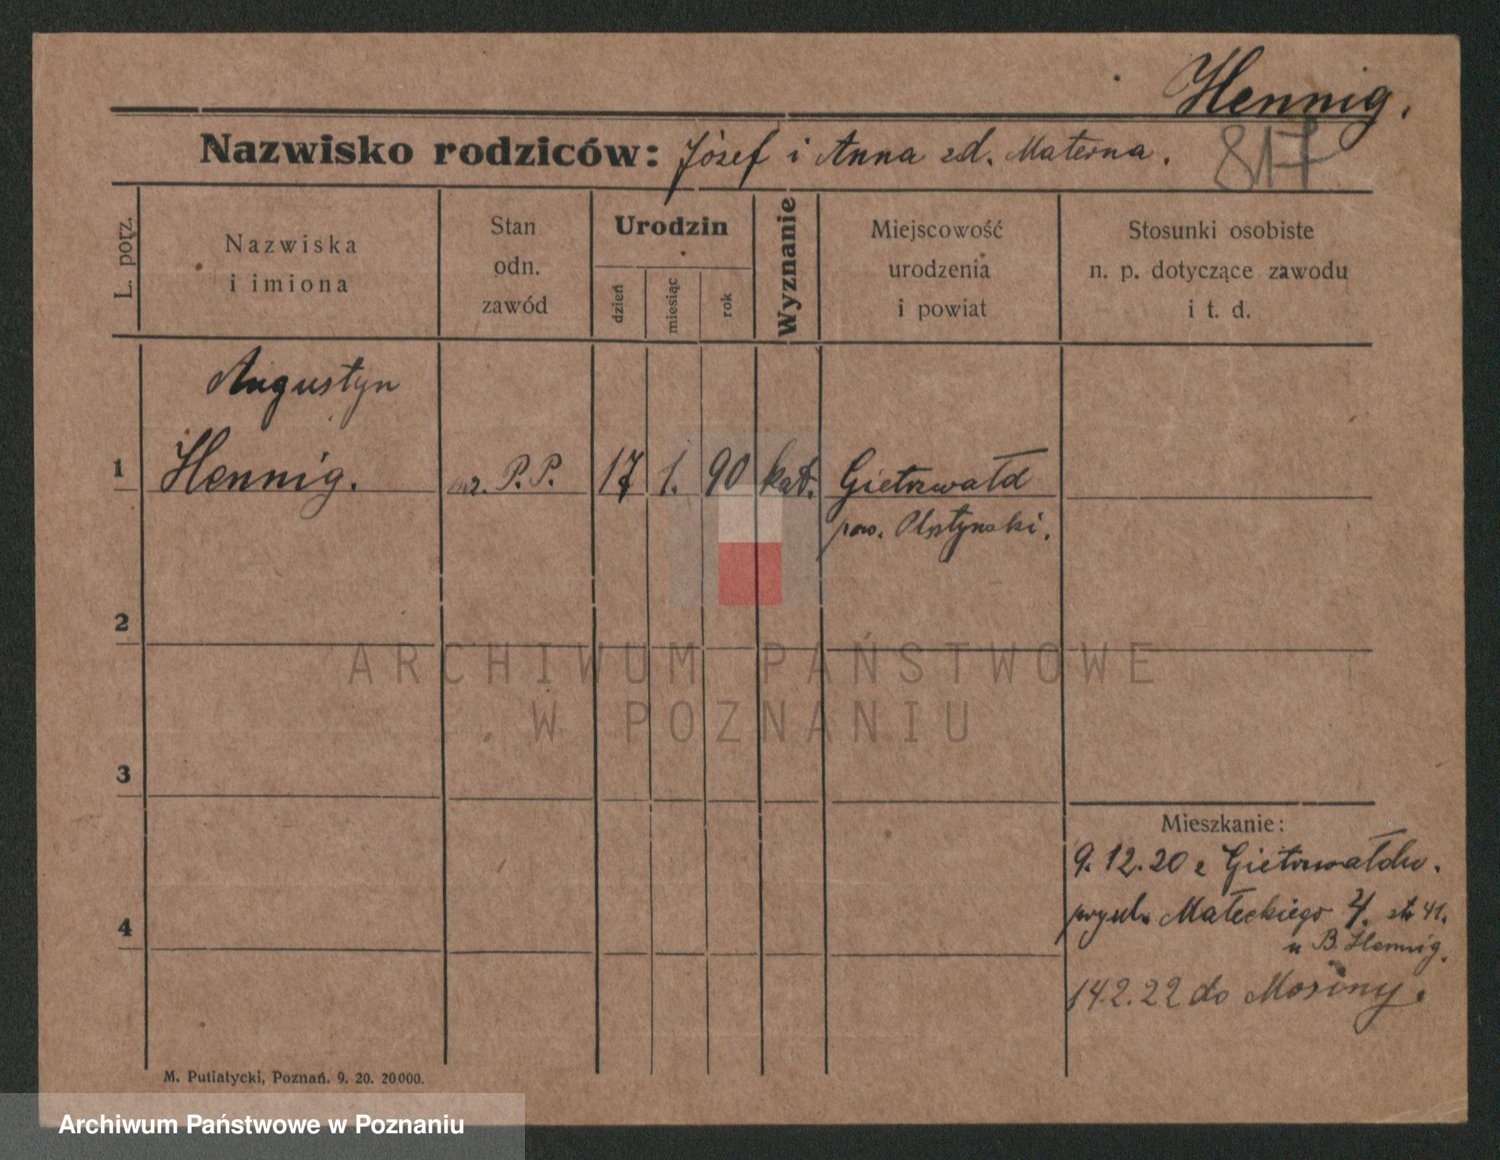 Hennig.
817
Nazwisko rodziców: Józef i Anna zd. Materna.
L. porz.
Nazwiska
i imiona
Stan
odn.
zawód
Urodzin
dzień
miesiąc
rok
Wyznanie
Miejscowość
urodzenia
i powiat
Stosunki osobiste
n. p. dotyczące zawodu
i t. d.
Augustyn
1 Hennig. P.P. 17 1. 90 kat. Gietrzwałd
pow. Olsztyński.
2
ARCHIWUM PAŃSTWOWE
W POZNANIU
3
Mieszkanie:
9.12.20 z Gietrzwałdu.
przy ul. Małeckiego 4. str 41.
u B. Hennig.
4
14.2.22 do Mosiny.
M. Putiatycki, Poznań. 9. 20. 20000.
Archiwum Państwowe w Poznaniu